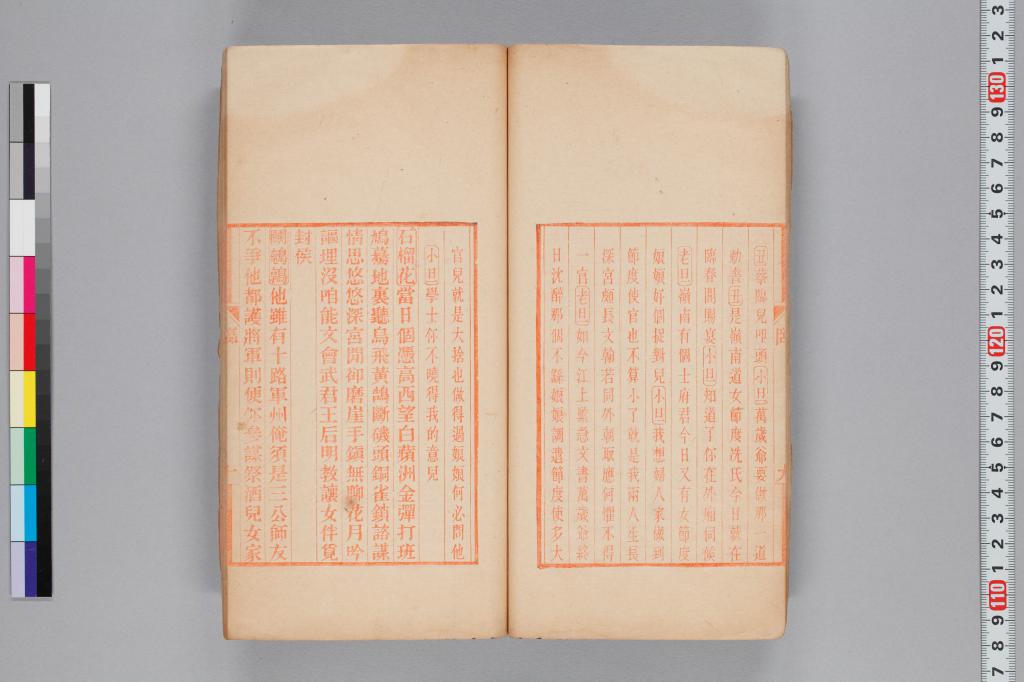 丑發賜兒叩頭小旦萬歲爺要做那一道
勅書丑是嶺南道女節度冼氏今日就在
臨春閣賜宴小旦知道了你在外廂伺候
老旦嶺南有個士府君今日又有女節度
娘娘好個捉對兒小旦我想婦人家做到
節度使官也不算小了就是我兩人生長
深宮頗長文翰若同外朝取應何懼不得
一官老旦如今江上警急文書萬歲爺終
日沈醉那個不繇娘娘調遣節度使多大
官兒就是大捨也做得過娘娘何必問他
小旦學士你不曉得我的意兒
石榴花當日個憑高西望白蘋洲金彈打班
鳩驀地裏聽烏飛黃鵠斷磯頭銅雀鎖諮謀
情思悠悠深宮閒卻磨崖手鎮無聊花月吟
謳埋沒咱能文會武君王后明教讓女伴覓
封侯
鬭鵪鶉他雖有十路軍州俺須是三公師友
不爭他都護將軍則便宜參謀祭酒兒女家